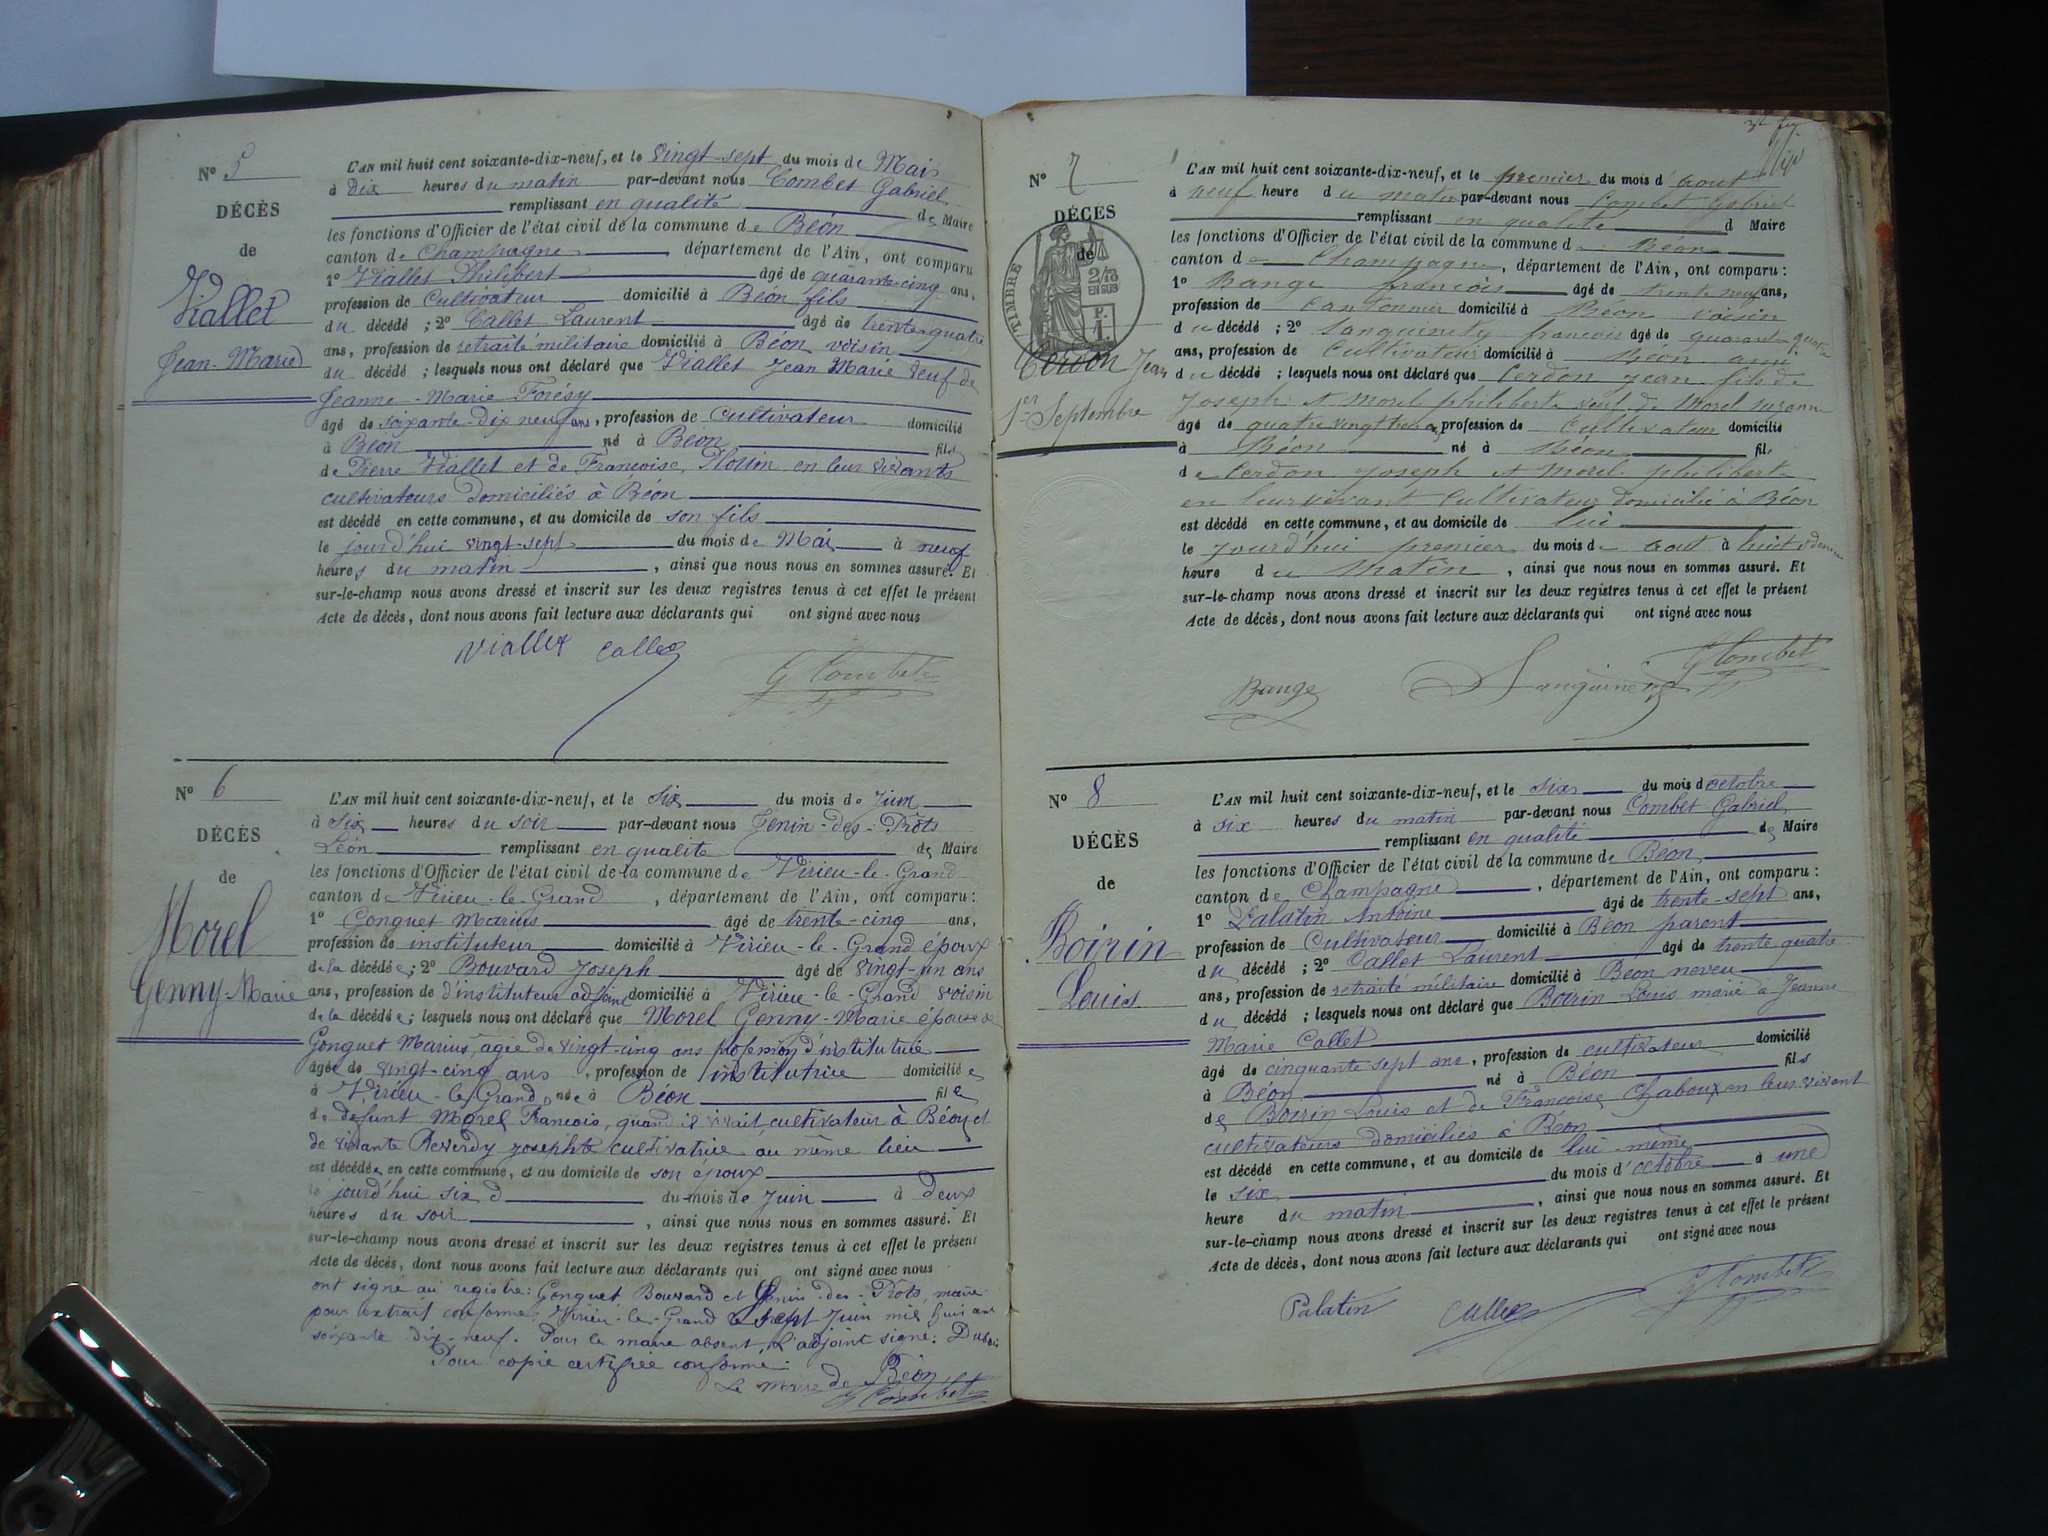 Nº 5
DÉCÈS
de
Viallet
Jean-Marie
L'AN mil huit cent soixante-dix-neuf, et le vingt-sept du mois de Mai
à Dix heures du matin par-devant nous Combet Gabriel
remplissant en qualité de Maire
les fonctions d'Officier de l'état civil de la commune de Béon
canton de Champagne département de l'Ain, ont comparu
1º Viallet Philibert âgé de quarante-cinq ans,
profession de Cultivateur domicilié à Béon fils
du décédé ; 2º Callet Laurent âgé de trente-quatre
ans, profession de retraité militaire domicilié à Béon voisin
du décédé ; lesquels nous ont déclaré que Viallet Jean Marie veuf de
Jeanne-Marie Forésy
âgé de soixante-dix neuf ans, profession de cultivateur domicilié
à Béon né à Béon fils
de Pierre Viallet et de Françoise, en leur vivants
cultivateurs domiciliés à Béon
est décédé en cette commune, et au domicile de son fils
le jourd'hui vingt-sept du mois de Mai à neuf
heures du matin, ainsi que nous nous en sommes assuré. Et
sur-le-champ nous avons dressé et inscrit sur les deux registres tenus à cet effet le présent
Acte de décès, dont nous avons fait lecture aux déclarants qui ont signé avec nous
Viallet Callet
G Combet
Nº 6
DÉCÈS
de
Morel
Genny-Marie
L'AN mil huit cent soixante-dix-neuf, et le six du mois de juin
à six heures du soir par-devant nous Genin-des-Prots
Léon remplissant en qualité de Maire
les fonctions d'Officier de l'état civil de la commune de Virieu-le-Grand
canton de Virieu-le-Grand, département de l'Ain, ont comparu :
1º Gonguet Marius âgé de trente-cinq ans,
profession de instituteur domicilié à Virieu-le-Grand époux
de la décédée ; 2º Bouvard Joseph âgé de vingt-un ans
ans, profession de d'instituteur adjoint domicilié à Virieu-le-Grand voisin
de la décédée ; lesquels nous ont déclaré que Morel Genny-Marie épouse de
Gonguet Marius, agée de vingt-cinq ans profession d'institutrice
âgée de vingt-cinq ans, profession de institutrice domiciliée
à Virieu-le-Grand née à Béon fille
de defunt Morel François, quand il vivait, cultivateur à Béon et
de vivante Reverdy josephte cultivatrice au même lieu
est décédée en cette commune, et au domicile de son époux
le jourd'hui six du mois de juin à deux
heures du soir, ainsi que nous nous en sommes assuré. Et
sur-le-champ nous avons dressé et inscrit sur les deux registres tenus à cet effet le présent
Acte de décès, dont nous avons fait lecture aux déclarants qui ont signé avec nous
ont signé au registre : Gonguet Bouvard et Genin-des-Prots, maire
pour extrait conforme, Virieu-le-Grand le sept juin mil huit cent
soixante dix-neuf. Pour le maire absent, l'adjoint signé :
Pour copie certifiée conforme :
Le Maire de Béon
G Combet
Nº 7
DÉCÈS
de
TIMBRE
2/10
EN SUS
Cerdon Jean
1er Septembre
L'AN mil huit cent soixante-dix-neuf, et le premier du mois d'aout
à neuf heure du matin par-devant nous Combet Gabriel
remplissant en qualité d Maire
les fonctions d'Officier de l'état civil de la commune de Béon
canton de Champagne, département de l'Ain, ont comparu :
1º Bange françois âgé de trente neuf ans,
profession de Cantonnier domicilié à Béon voisin
du décédé ; 2º Sanguinety françois âgé de quarante quatre
ans, profession de Cultivateur domicilié à Béon ami
du décédé ; lesquels nous ont déclaré que Cerdon jean fils de
Joseph et Morel philiberte veuf de Morel suzanne
âgé de quatre vingt trois a, profession de cultivateur domicilié
à Béon né à Béon fils
de Cerdon joseph et Morel philiberte
en leur vivant Cultivateur domicilié à Béon
est décédé en cette commune, et au domicile de lui
le jourd'hui premier du mois de aout à huit et demie
heure du Matin, ainsi que nous nous en sommes assuré. Et
sur-le-champ nous avons dressé et inscrit sur les deux registres tenus à cet effet le présent
Acte de décès, dont nous avons fait lecture aux déclarants qui ont signé avec nous
Bange Sanguinety G Combet
Nº 8
DÉCÈS
de
Boirin
Louis
L'AN mil huit cent soixante-dix-neuf, et le six du mois d'octobre
à six heures du matin par-devant nous Combet Gabriel
remplissant en qualité de Maire
les fonctions d'Officier de l'état civil de la commune de Béon
canton de Champagne, département de l'Ain, ont comparu :
1º Palatin Antoine âgé de trente-sept ans,
profession de Cultivateur domicilié à Béon parent
du décédé ; 2º Callet Laurent âgé de trente quatre
ans, profession de retraité militaire domicilié à Béon neveu
du décédé ; lesquels nous ont déclaré que Boirin Louis marié à Jeanne
Marie Callet
âgé de cinquante sept ans, profession de cultivateur domicilié
à Béon né à Béon fils
de Boirin Louis et de Françoise Chaboux en leur vivant
cultivateurs domiciliés à Béon
est décédé en cette commune, et au domicile de lui-même
le six du mois d'octobre à une
heure du matin, ainsi que nous nous en sommes assuré. Et
sur-le-champ nous avons dressé et inscrit sur les deux registres tenus à cet effet le présent
Acte de décès, dont nous avons fait lecture aux déclarants qui ont signé avec nous
Palatin Callet G Combet